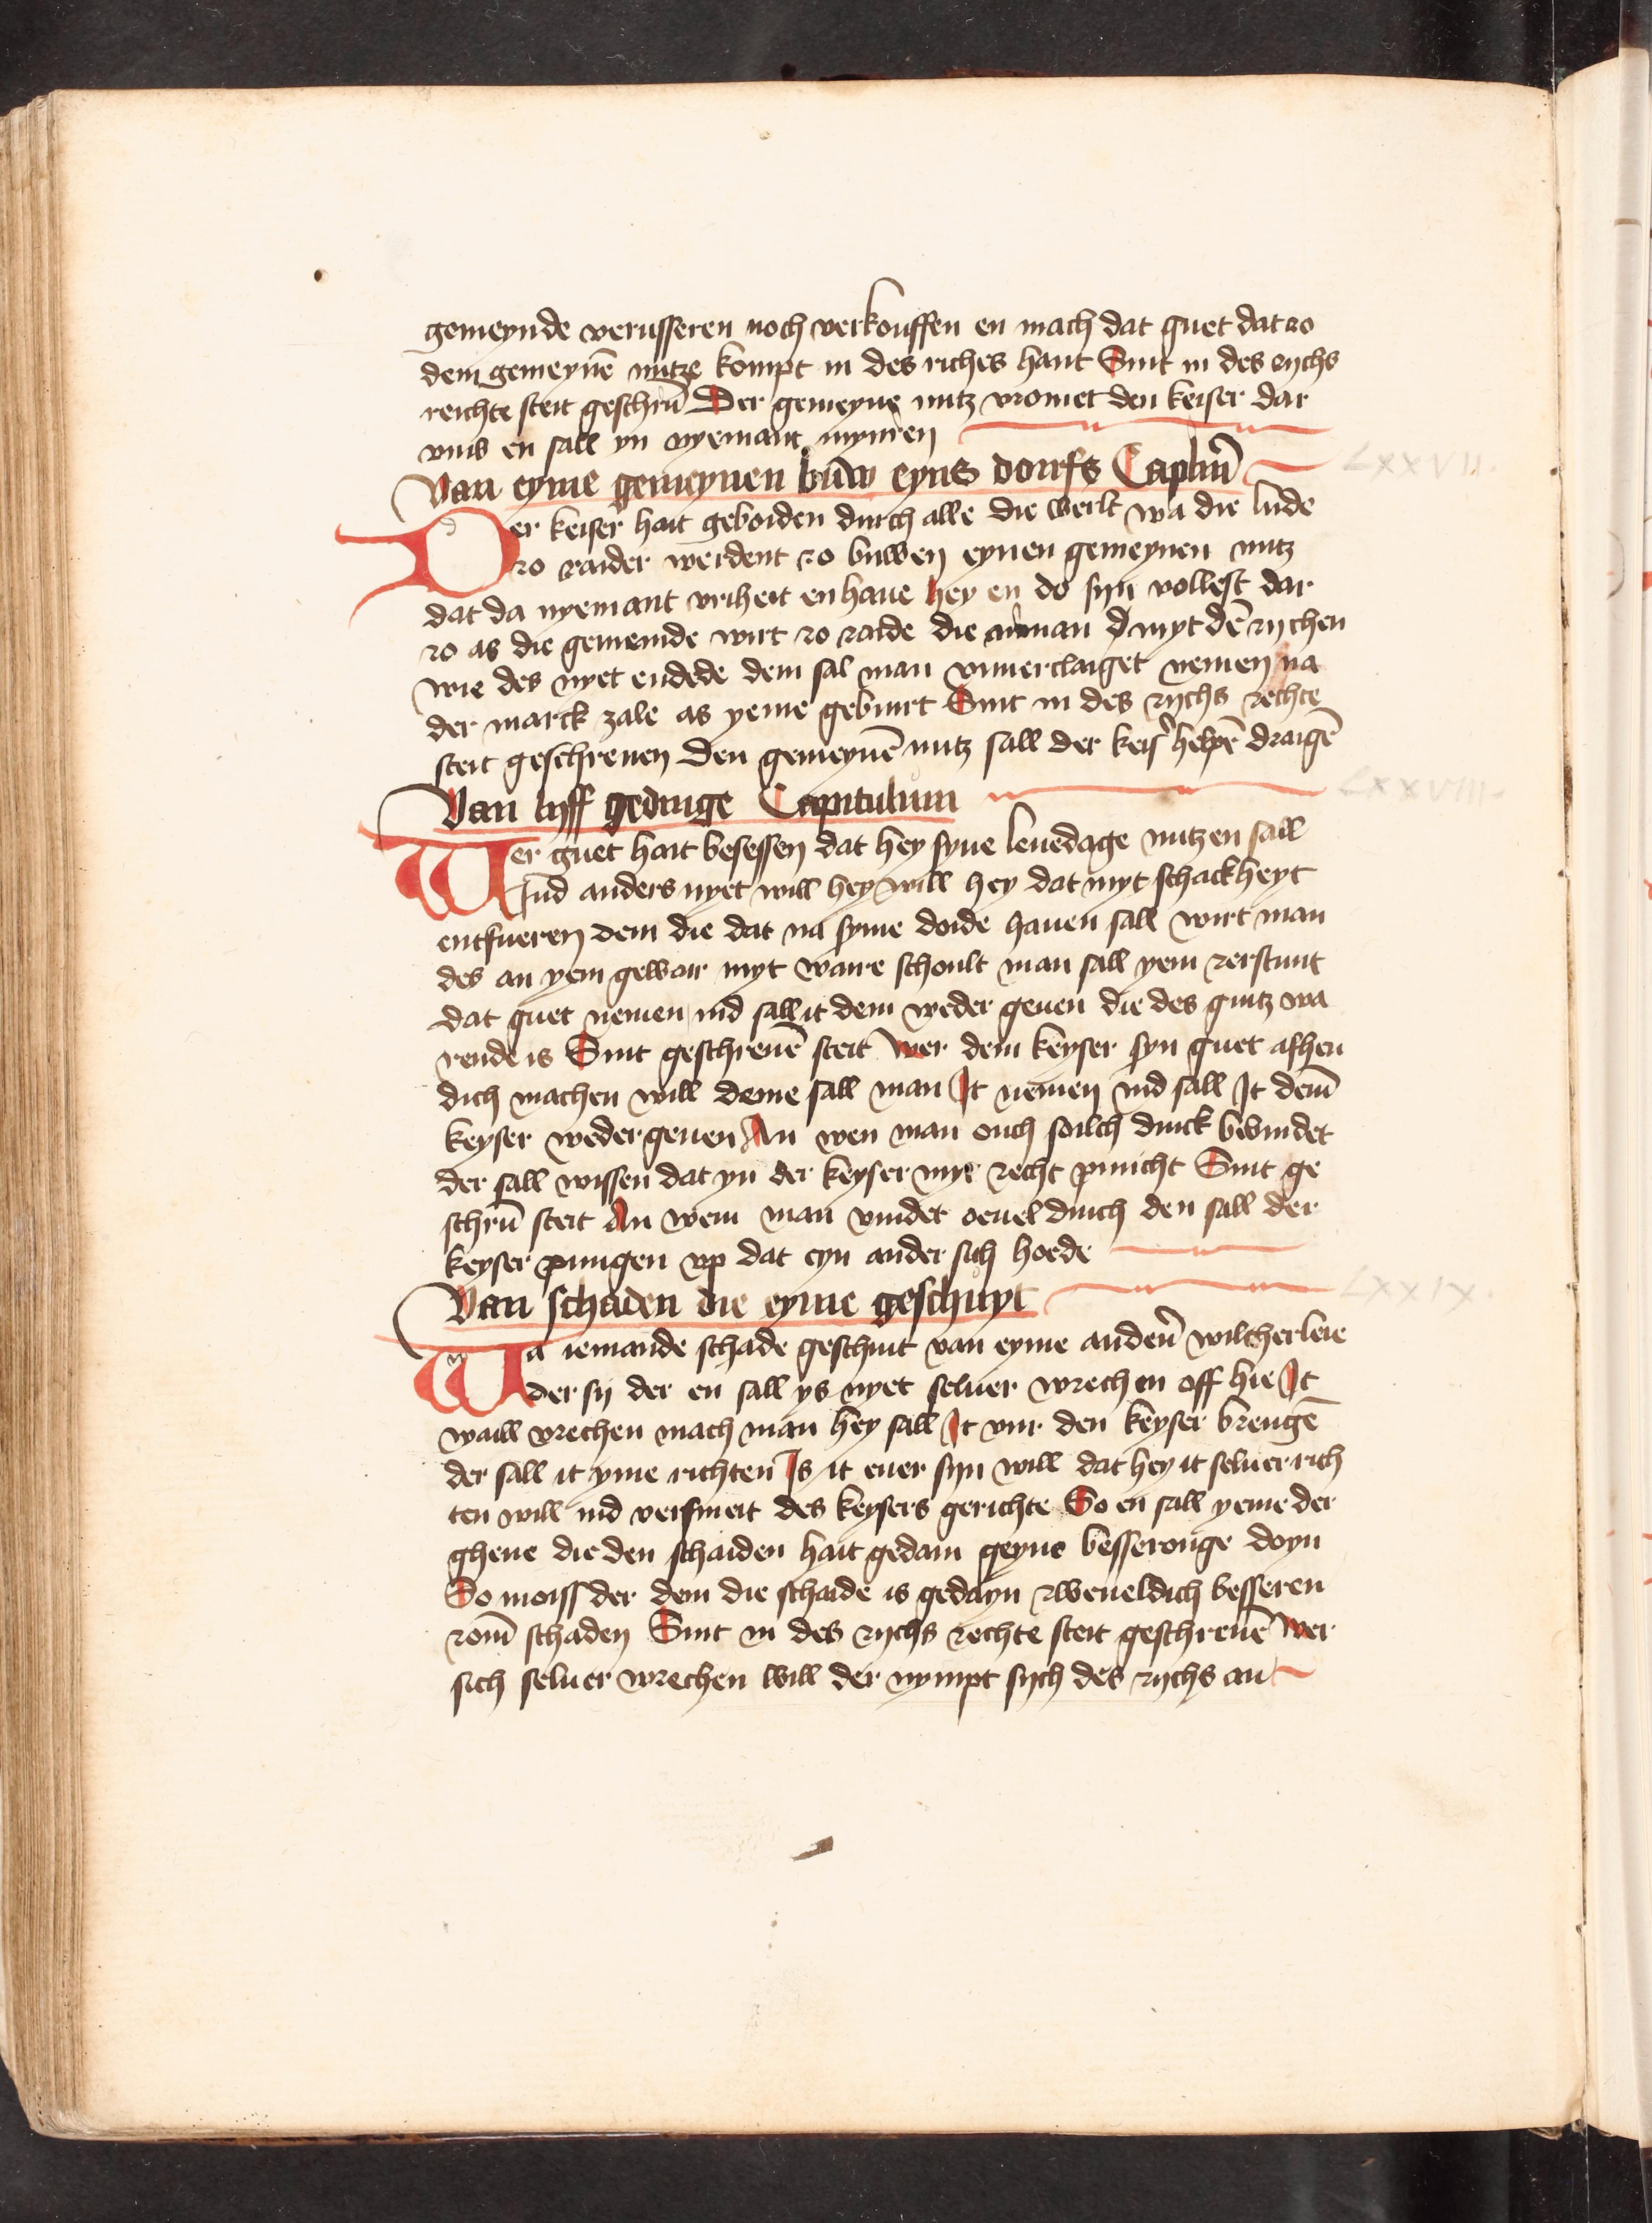 gemeynde verusseren noch verkouffen en mach dat guet dat zo
dem gemeynē nutze kompt in des riches hant Sint in des rychs
reichte steit geschrū Der gemeyne nutz vromet den keiser dar
vmb en sall yn nyemant mynren
Van eyme gemeynen buw eyns dorrfs Caplm̄
LXXVII.
Der keiser hait geboiden durch alle die werlt wa die lude
zo raider werdent zo buwen eynen gemeynen nutz
dat da nyemant vriheit en haue hey en do syn vollest dar
zo as die gemeinde wirt zo raide die myt dē rychen
wie des nyet endede dem sal man vnuerclaiget nemen na
der marck zale as yeme geburt Sint in des rychs rechte
steit geschreuen Den gemeynē nutz sall der keisʼ helpē draigē
Van lyff gedinge Capitulum
LXXVIII.
Wer guet hait besessen dat hey syne leuedage nutzen sall
Ind anders nyet will hey will hey dat myt schackheyt
entfueren dem die dat na syme doide hauen sall wirt man
des an yem gewair myt waire schoult man sall yem zerstunt
dat guet nemen ind sall it dem weder geuen die des gutz wa
rende is Sint geschreuē steit wer dem keyser syn guet afhen
dich machen will deme sall man It nemen ind sall It dem̄
keyser weder geuen An wen man ouch soilch dinck bevindet
der sall wissen dat yn der keyser myt recht pinicht Sint ge
schrū steit An wem man vindet oeuel dinch den sall der
keyser pinigen vp dat eyn ander sich hoede
Van schaden die eyme geschuyt
LXXIX.
Wa iemande schade geschuit van eyme anderʼ wilcherleie
der sy der en sall ys nyet seluer wrechen off hie It
waill vrechen mach man hey sall It vur den keyser brengē
der sall it yme richten Is it euer syn will dat hey it seluer rich
ten will ind versmeit des keysers gerichte So en sall yeme der
ghene die den schaiden hait gedain geyne besseronge doyn
So moiss der dem die schaide is gedayn zweueldich besseren
zom̄ schaden Sint in des rychs rechte steit geschreuē Wer
sich seluer wrechen will der nympt sych des rychs an